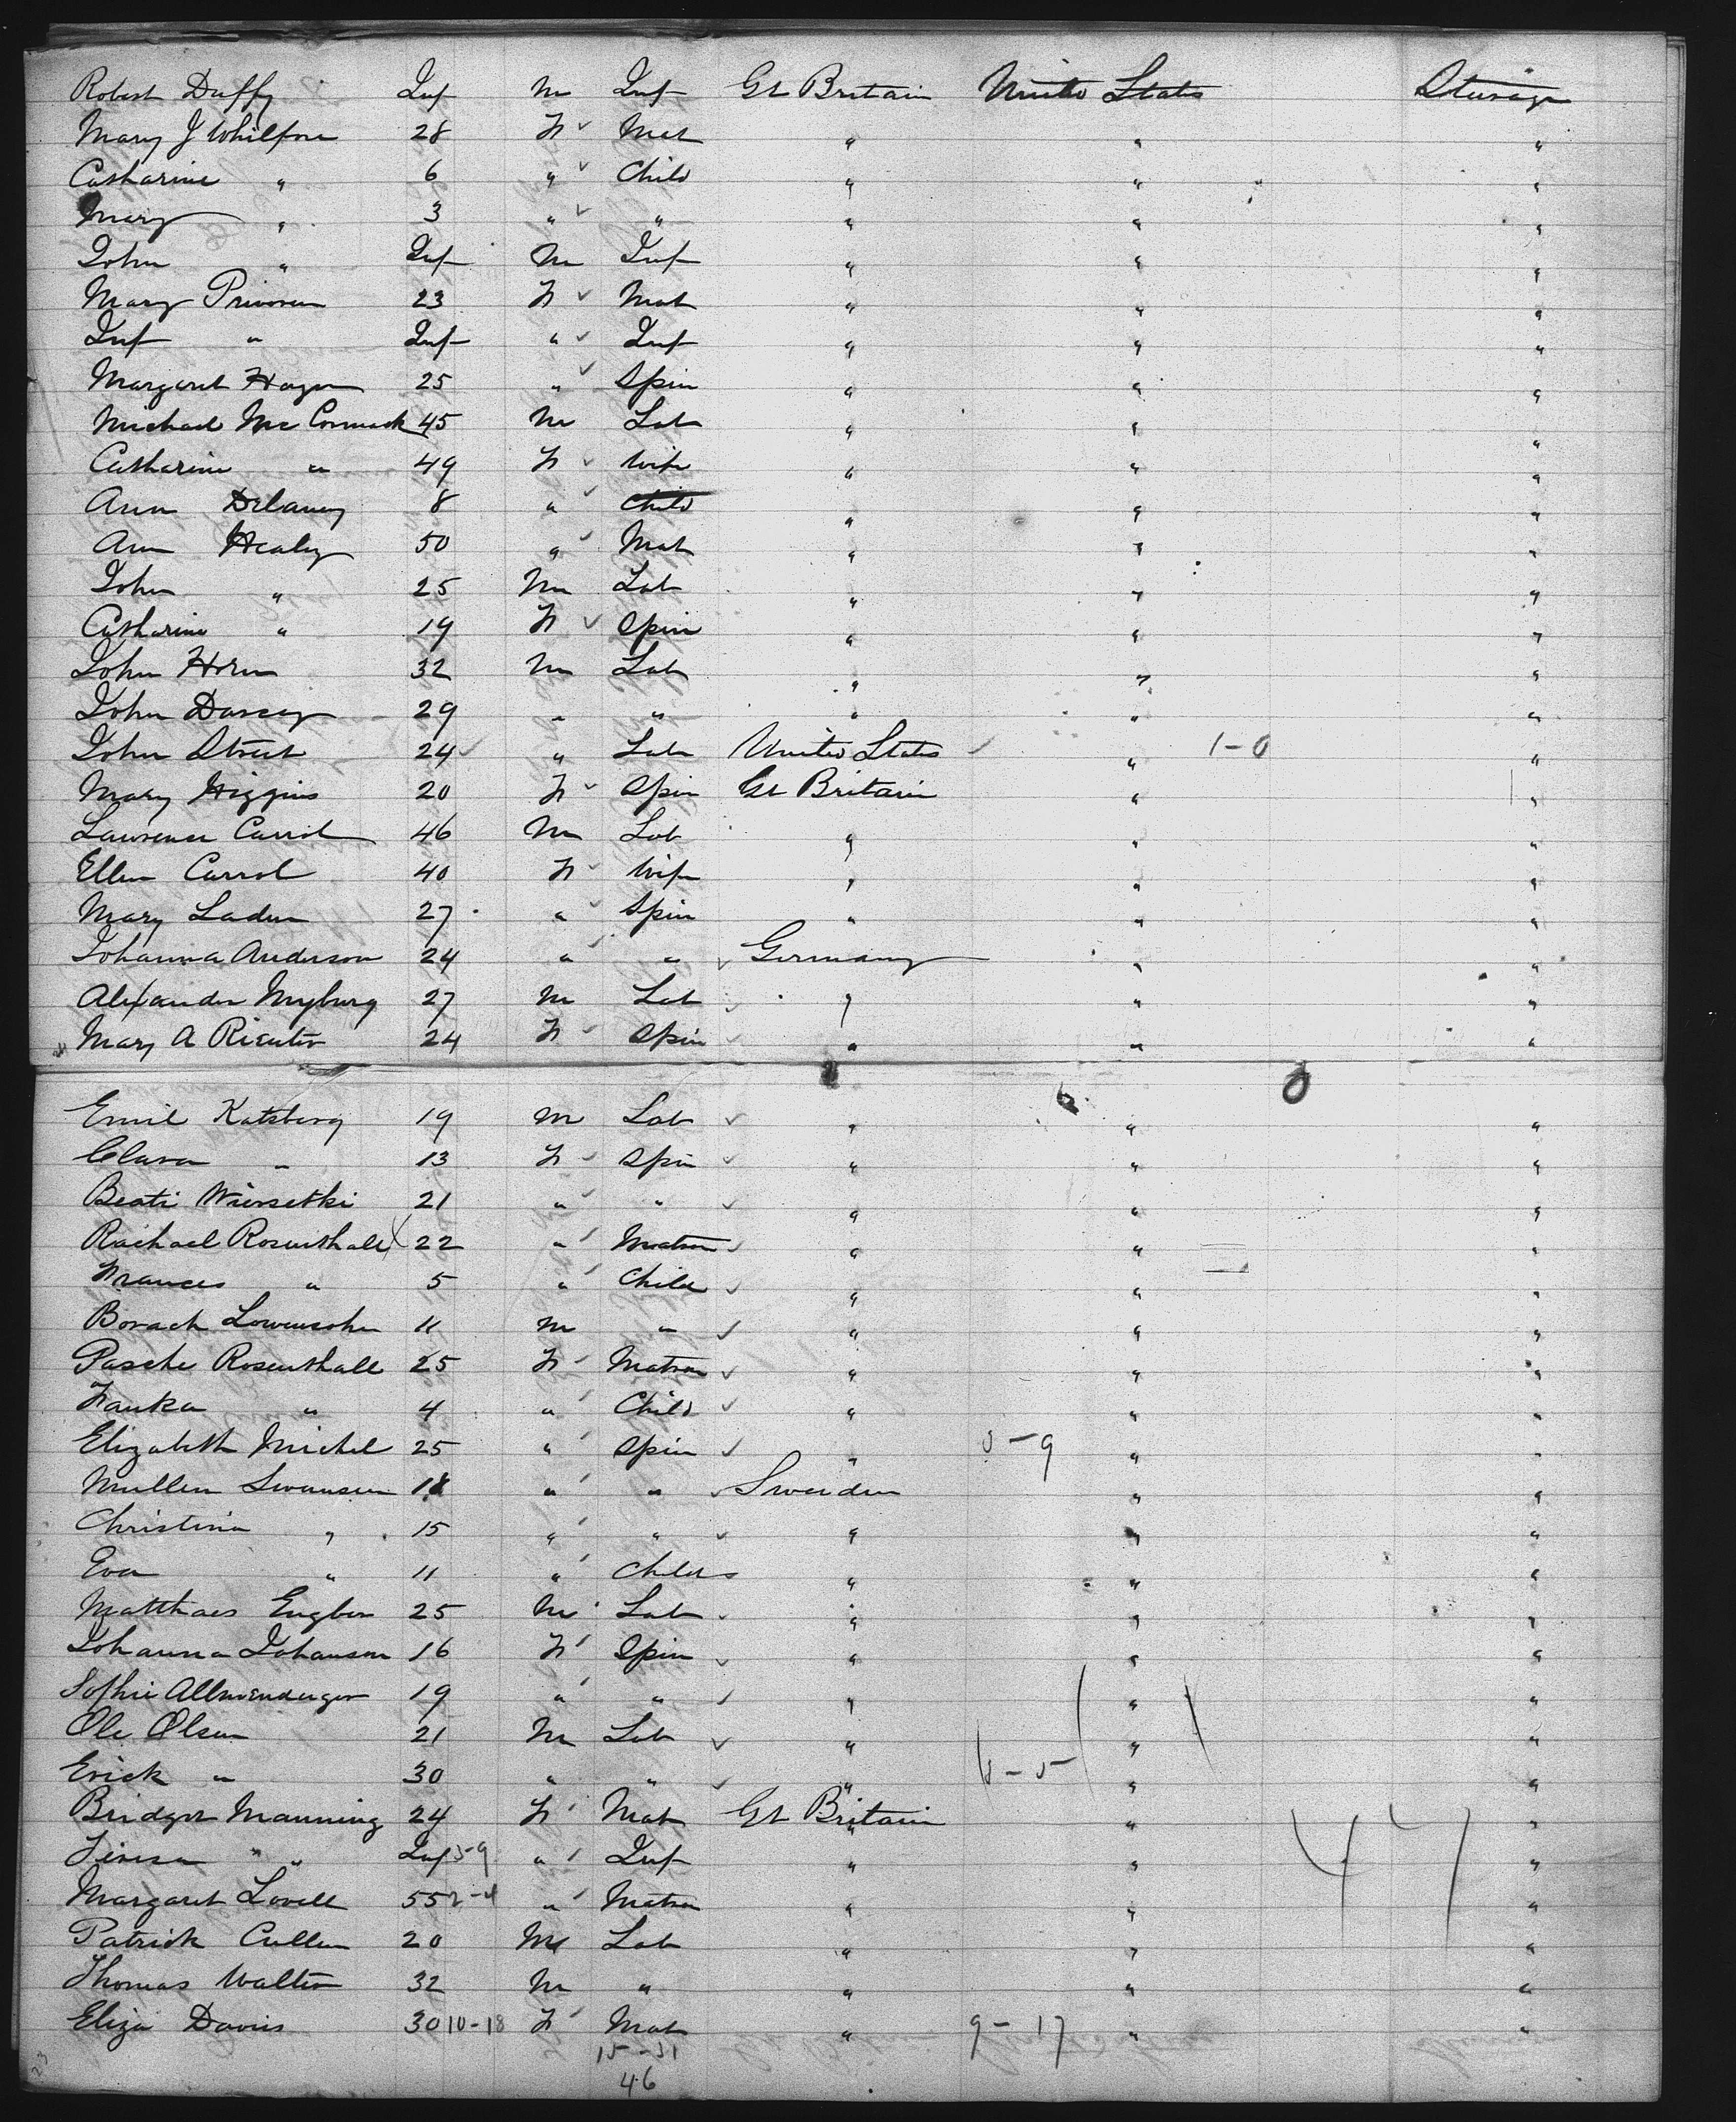 Robert Duffy Inf M Inf Gt Britain United States Steerage
Mary J Whilfore 28 F Mat " " "
Catharine " 6 " Child " " "
Mary " 3 " " " " "
John " Inf M Inf " " "
Mary 23 F Mat " " "
Inf " Inf " Inf " " "
Margaret Hogan 25 " Spin " " "
Michael McCormack 45 M Lab " " "
Catharine " 49 F Wife " " "
Ann Delaney 8 " Child " " "
Ann Healy 50 " Mat " " "
John " 25 M Lab " " "
Catharine " 19 F Spin " " "
John Horn 32 M Lab " " "
John Darcey 29 " " " " "
John Street 24 " Lab United States " 1-0 "
Mary Higgins 20 F Spin Gt Britain " "
Lawrence Carrol 46 M Lab " " "
Ellen Carrol 40 F Wife " " "
Mary Laden 27 " Spin " " "
Johanna Anderson 24 " " Germany " "
Alexander Myburg 27 M Lab " " "
24 Mary A Rieuter 24 F Spin " " "
Emil Katzberg 19 M Lab " " "
Clara " 13 F Spin " " "
Beati 21 " " " " "
Rachael Rosenthall 22 " Matron " " "
Frances " 5 " Child " " "
Borach Lowensohn 11 M " " " "
Pasche Rosenthall 25 F Matron " " "
Fanka " 4 " Child " " "
Elizabeth Michel 25 " Spin " " "
Mullen Swansen 18 " " Sweden " "
Christina " 15 " " " " "
Eva " 11 " Child " " "
Matthaes Engben 25 M Lab " " "
Johanna Johanson 16 F Spin " " "
Sophie Allmendinger 19 " " " " "
Ole Olsen 21 M Lab " " "
Erick " 30 " " " " "
Bridget Manning 24 F Mat Gt Britain " "
Teresa " Inf 5-9 " Inf " " "
Margaret Lovell 55 2-4 " Matron " " "
Patrick Cullen 20 M Lab " " "
Thomas Walter 32 M " " " "
Eliza Davis 30 10-18 F Mat " 9-17 " "
23 15-31
46